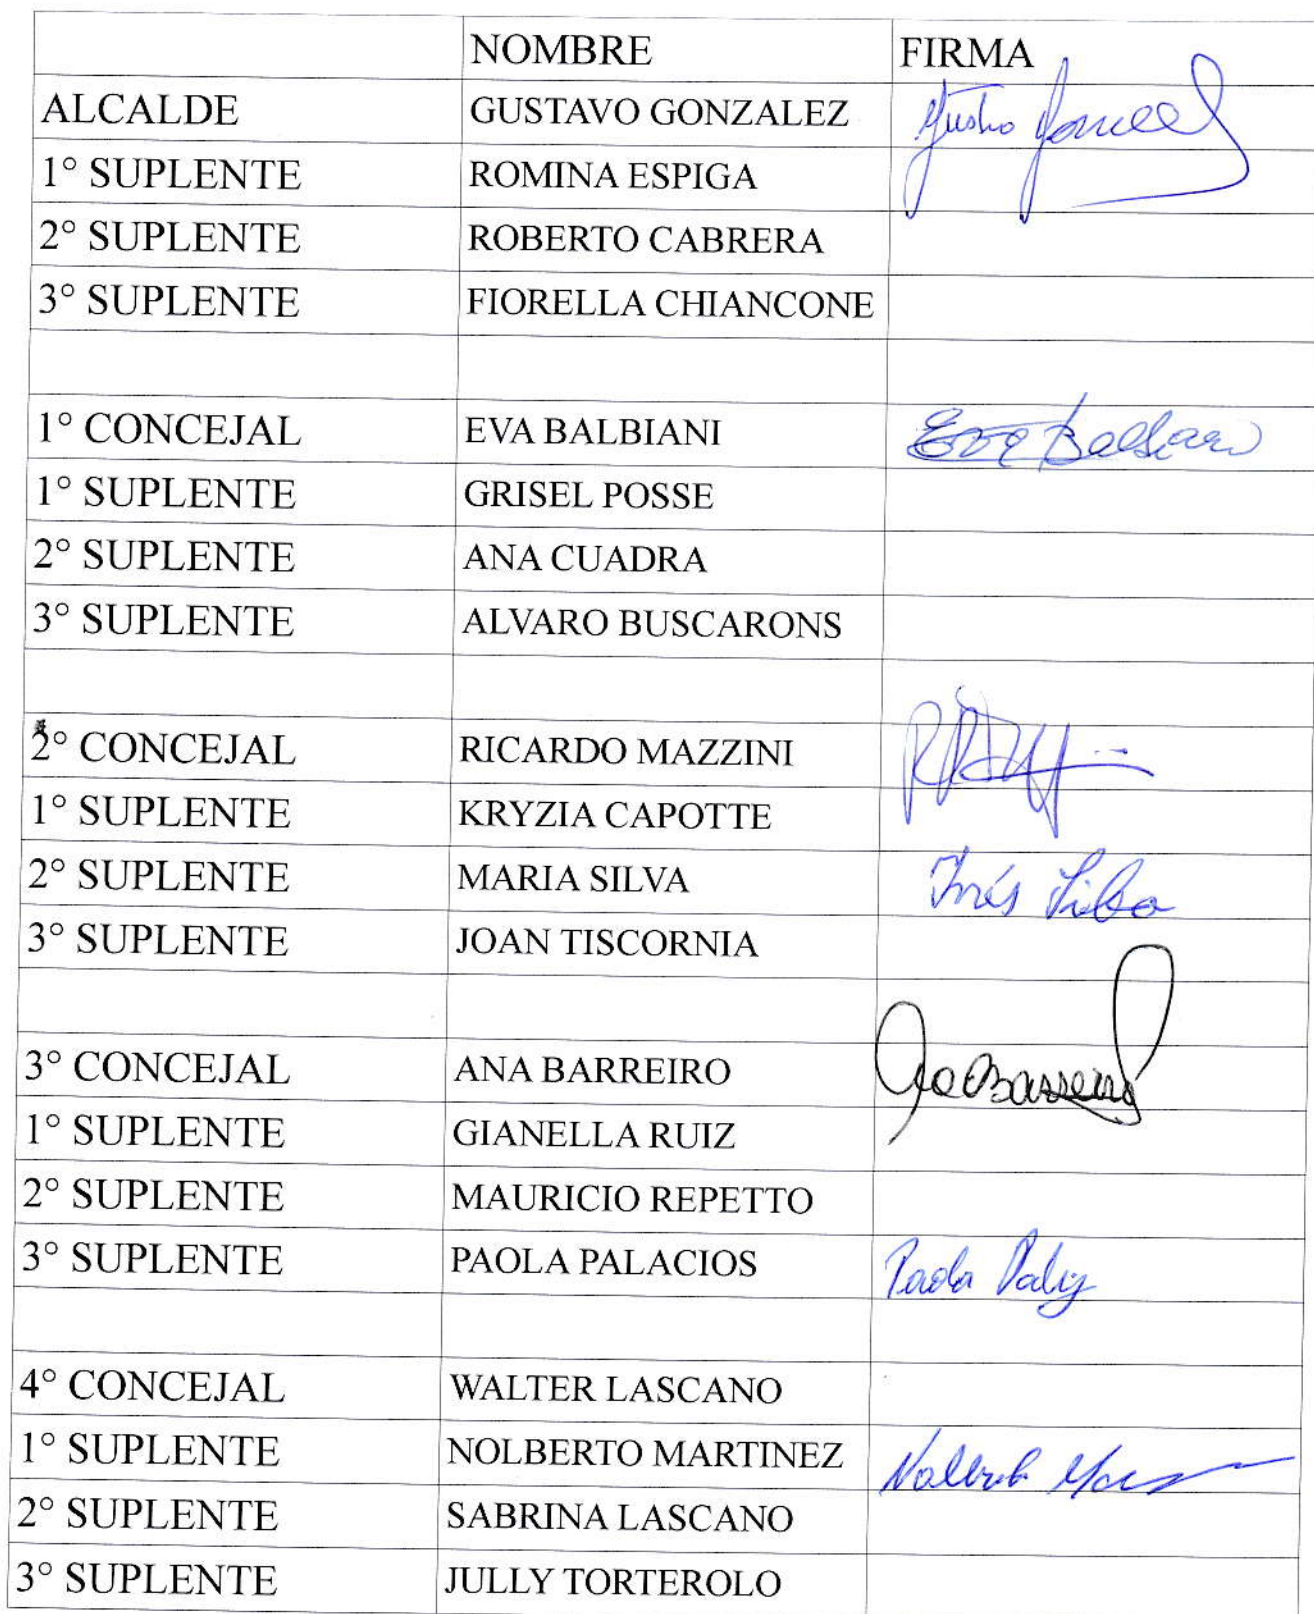 NOMBRE FIRMA
ALCALDE GUSTAVO GONZALEZ
1° SUPLENTE ROMINA ESPIGA
2° SUPLENTE ROBERTO CABRERA
3° SUPLENTE FIORELLA CHIANCONE
1° CONCEJAL EVA BALBIANI Eva Balbiani
1° SUPLENTE GRISEL POSSE
2° SUPLENTE ANA CUADRA
3° SUPLENTE ALVARO BUSCARONS
2° CONCEJAL RICARDO MAZZINI
1° SUPLENTE KRYZIA CAPOTTE
2° SUPLENTE MARIA SILVA Inés Silva
3° SUPLENTE JOAN TISCORNIA
3° CONCEJAL ANA BARREIRO
1° SUPLENTE GIANELLA RUIZ
2° SUPLENTE MAURICIO REPETTO
3° SUPLENTE PAOLA PALACIOS Paola
4° CONCEJAL WALTER LASCANO
1° SUPLENTE NOLBERTO MARTINEZ
2° SUPLENTE SABRINA LASCANO
3° SUPLENTE JULLY TORTEROLO